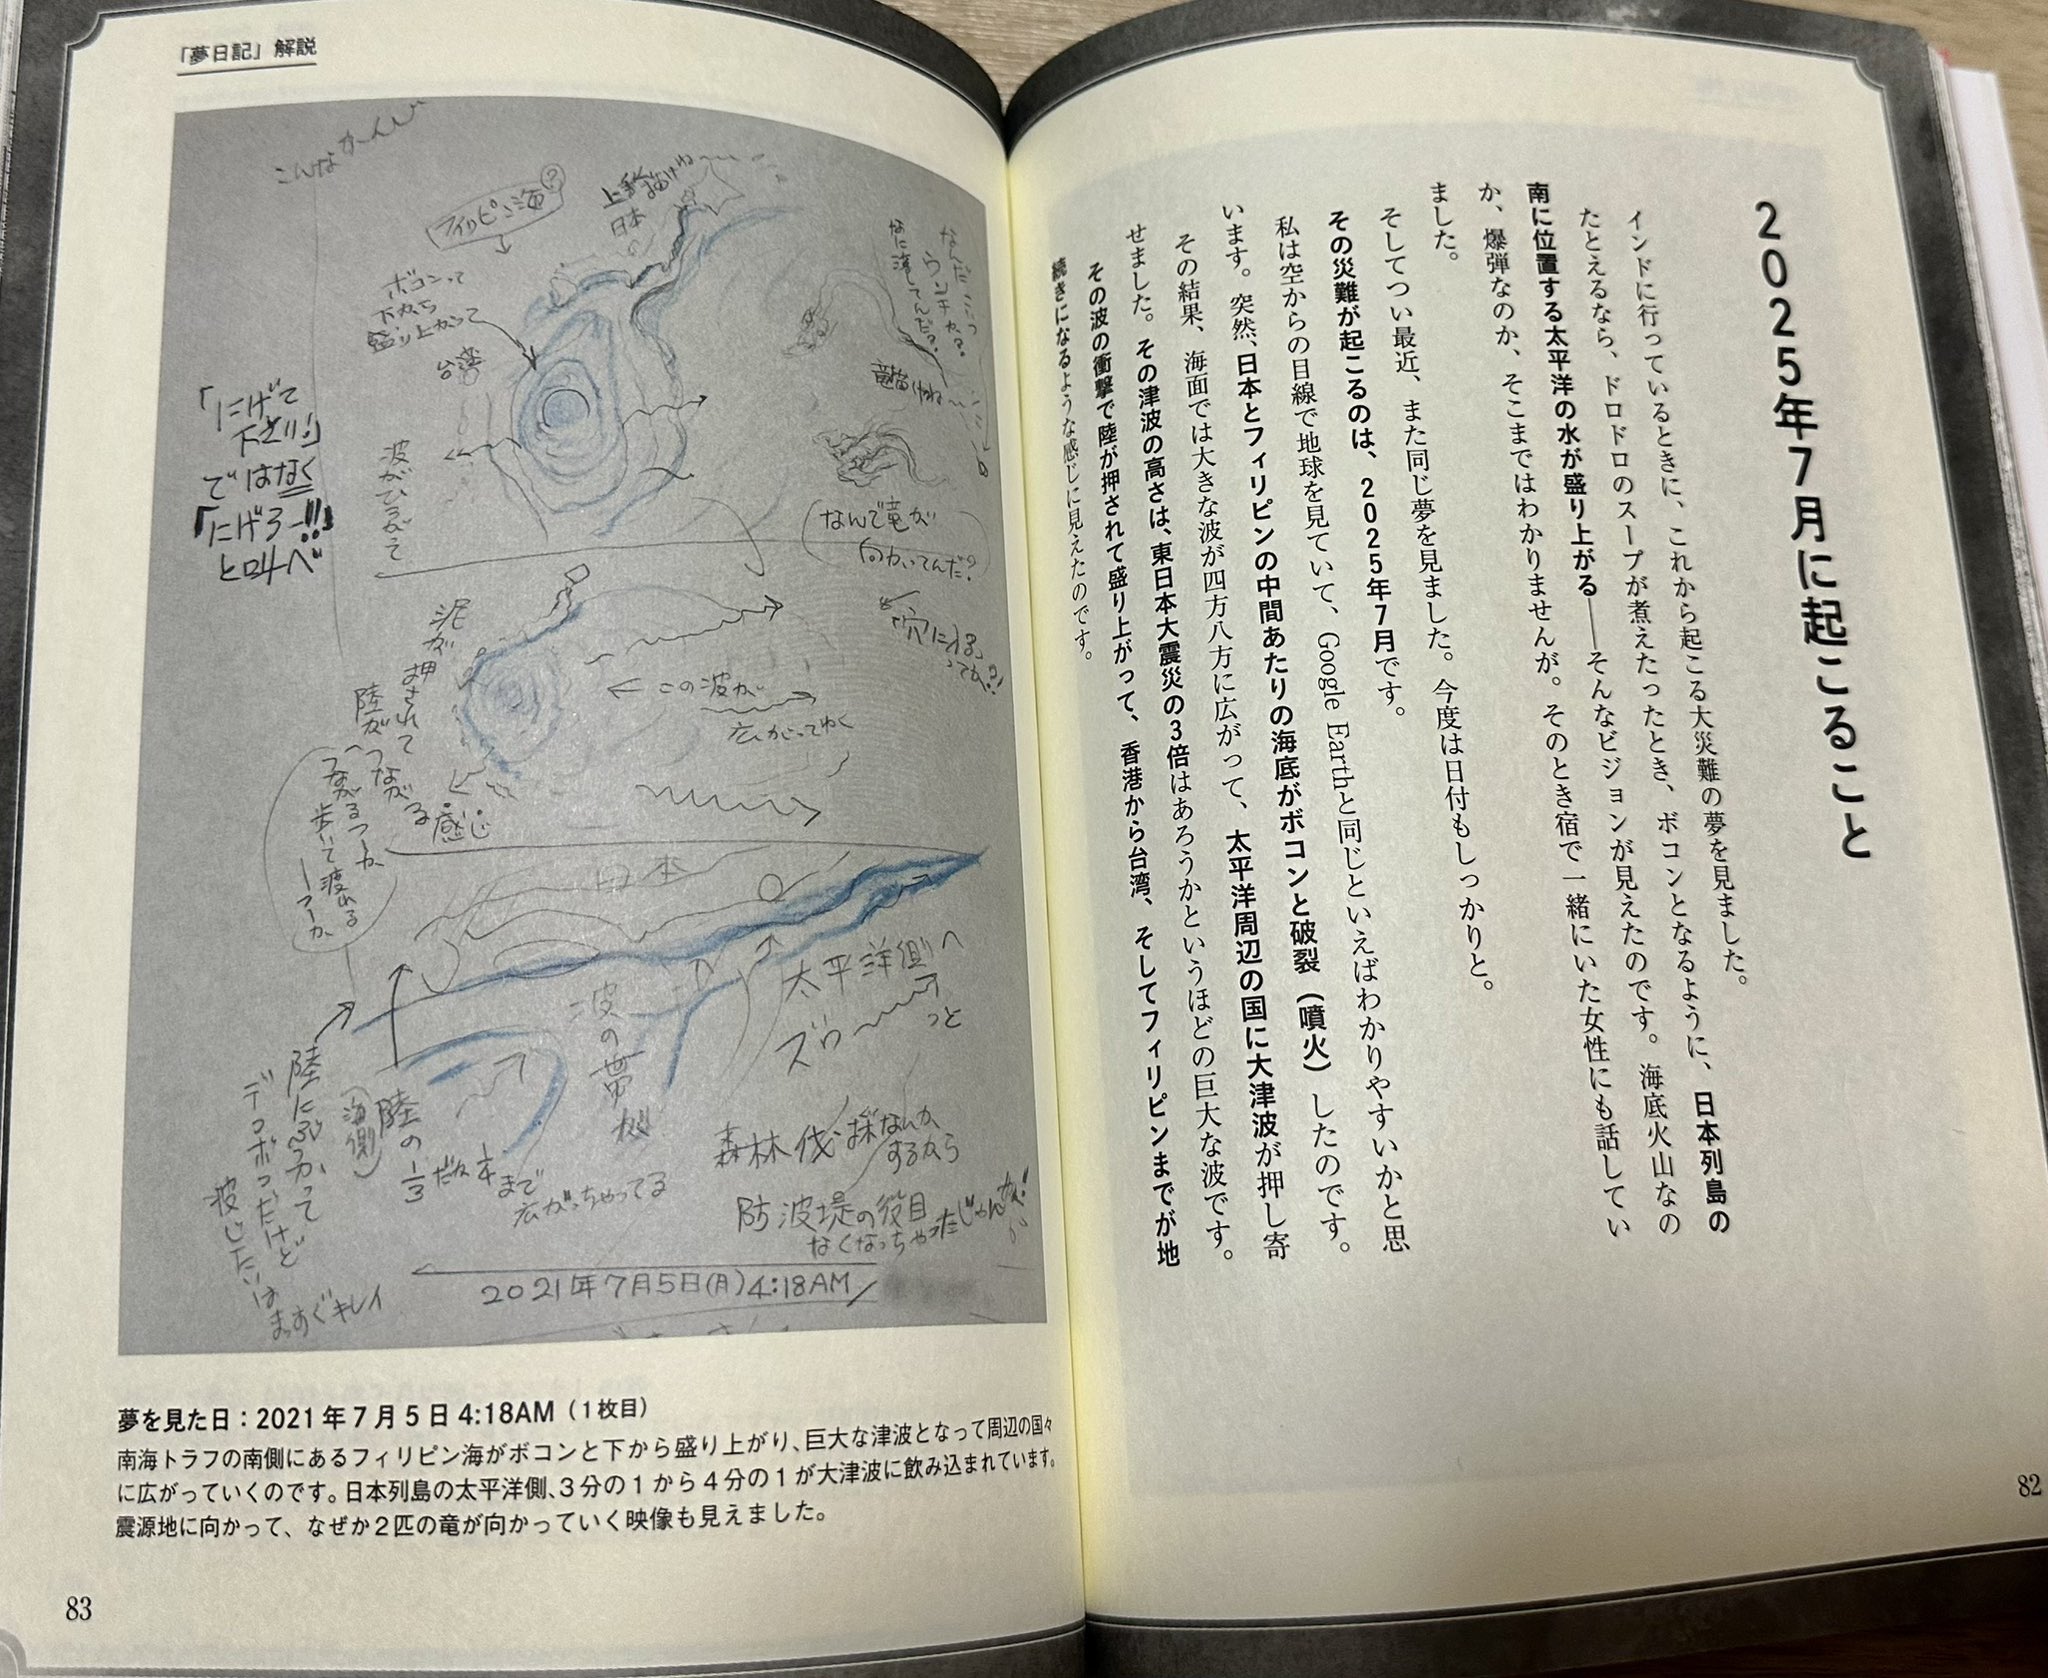 2025年7月に起こること
インドに行っているときに、これから起こる大災難の夢を見ました。
たとえるなら、ドロドロのスープが煮えたったとき、ボコンとなるように、日本列島の
南に位置する太平洋の水が盛り上がる――そんなビジョンが見えたのです。海底火山なの
か、爆弾なのか、そこまではわかりませんが。そのとき宿で一緒にいた女性にも話してい
ました。
そしてつい最近、また同じ夢を見ました。今度は日付もしっかりと。
その災難が起こるのは、2025年7月です。
私は空からの目線で地球を見ていて、Google Earthと同じといえばわかりやすいかと思
います。突然、日本とフィリピンの中間あたりの海底がボコンと破裂（噴火）したのです。
その結果、海面では大きな波が四方八方に広がって、太平洋周辺の国に大津波が押し寄
せました。その津波の高さは、東日本大震災の3倍はあろうかというほどの巨大な波です。
その波の衝撃で陸が押されて盛り上がって、香港から台湾、そしてフィリピンまでが地
続きになるような感じに見えたのです。
82
「夢日記」解説
こんなかんじ
フィリピン海?
上手くまげれね
日本
ボコンって
下から
盛り上がって
台湾
なんだこいつ
ウンチか?
なに流してんだ?
竜描けね〜
「にげて
下さい!」
ではなく
「にげろー!!」
と叫べ
波がひろがって
なんで竜が
向かってんだ?
「穴に入る」
ってか?!
泥が押されて
陸がつながる
感じ
この波が
広がってゆく
つながるつーか
歩いて渡れる
ーつーか
日本
太平洋側へ
ズゥーっと
波の帯が
陸にぶつかって
(海側)
デコボコだけど
波じたいは
まっすぐキレイ
陸の1/3だな1/4まで
広がっちゃってる
森林伐採なんか
するから
防波堤の役目
なくなっちゃったじゃんか!
2021年7月5日(月)4:18AM
夢を見た日：2021年7月5日 4:18AM（1枚目）
南海トラフの南側にあるフィリピン海がボコンと下から盛り上がり、巨大な津波となって周辺の国々
に広がっていくのです。日本列島の太平洋側、3分の1から4分の1が大津波に飲み込まれています。
震源地に向かって、なぜか2匹の竜が向かっていく映像も見えました。
83